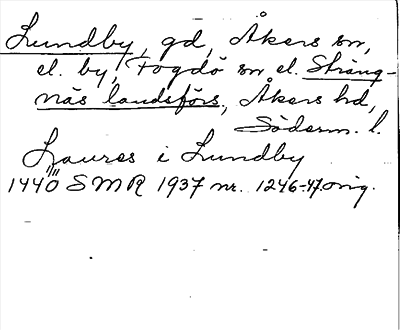 Lundby, gd, Åkers sn,
el. by, Fogdö sn el. Sträng-
näs landsförs., Åkers hd,
Söderm. l.
Laures i Lundby
1440 SMR 1937 nr. 1246-47. orig.